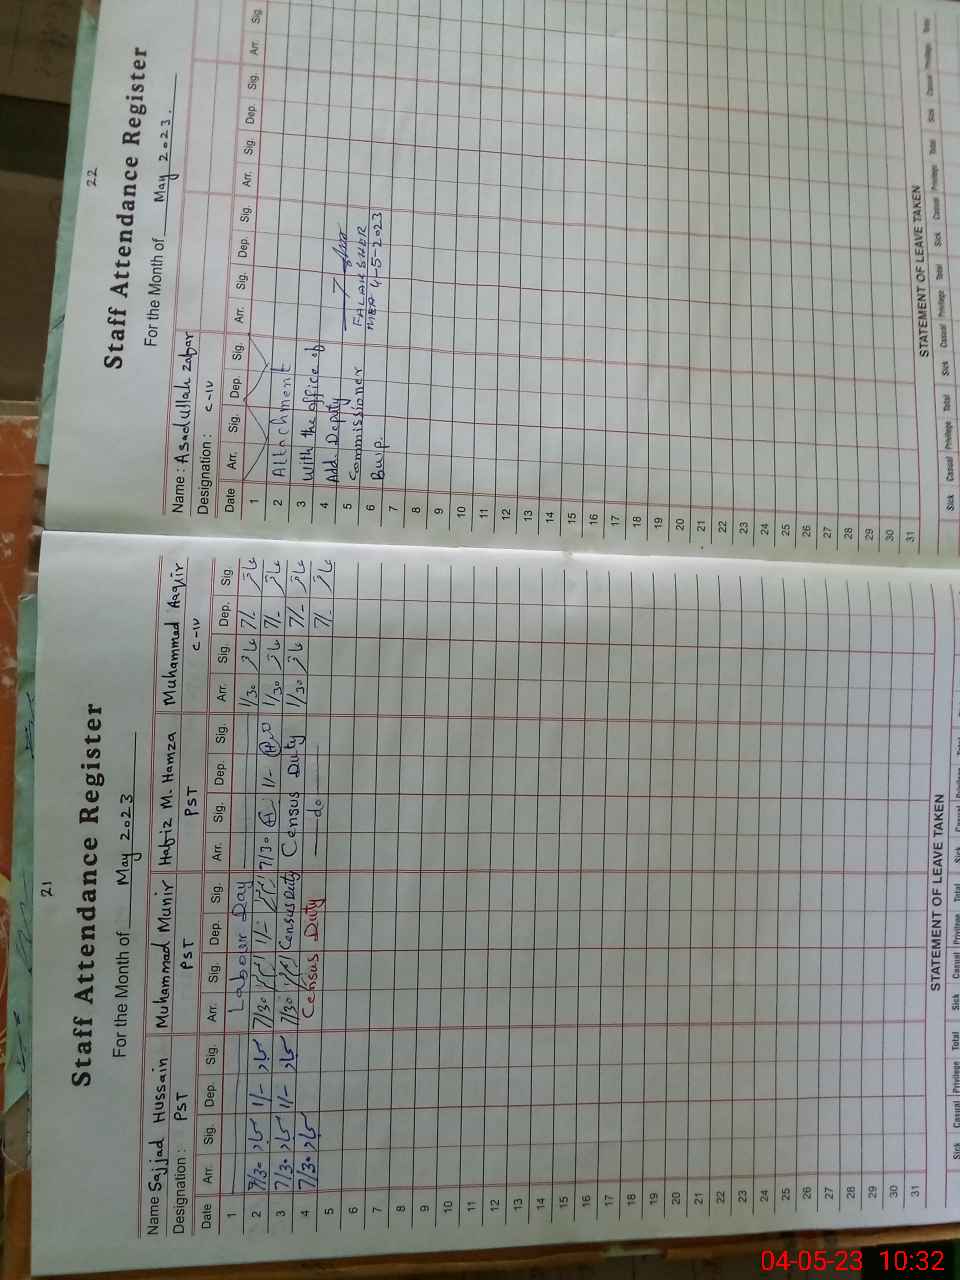 21
Staff Attendance Register
For the Month of May 2023
Name Sajjad Hussain Muhammad Munir Hafiz M. Hamza Muhammad Aaqir
Designation : PST PST PST C-IV
Date Arr. Sig. Dep. Sig. Arr. Sig. Dep. Sig. Arr. Sig. Dep. Sig. Arr. Sig. Dep. Sig
1 Labour Day 1/30 7/-
2 7/30 1/- 7/30 1/- 7/30 1/- 1/30 7/-
3 7/30 1/- 7/30 Census Duty Census Duty 1/30 7/-
4 7/30 Census Duty do 7/-
5
6
7
8
9
10
11
12
13
14
15
16
17
18
19
20
21
22
23
24
25
26
27
28
29
30
31
STATEMENT OF LEAVE TAKEN
Sick Casual Privilege Total Sick Casual Privilege Total Sick Casual Privilege Total
22
Staff Attendance Register
For the Month of May 2023.
Name : Asadullah Zafar
Designation : C-IV
Date Arr. Sig. Dep. Sig. Arr. Sig. Dep. Sig. Arr. Sig. Dep. Sig. Arr. Sig.
1
2 Attachment
3 with the office of
4 Add. Deputy
5 Commissioner FALAK SHER
6 Bwp. MEA 4-5-2023
7
8
9
10
11
12
13
14
15
16
17
18
19
20
21
22
23
24
25
26
27
28
29
30
31
STATEMENT OF LEAVE TAKEN
Sick Casual Privilege Total Sick Casual Privilege Total Sick Casual Privilege Total Sick Casual Privilege Total
04-05-23 10:32